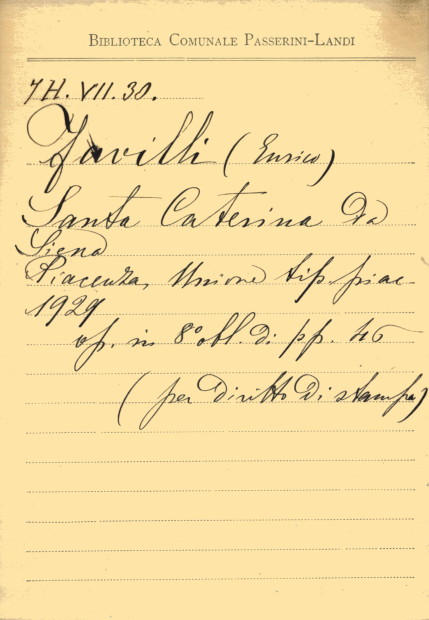 BIBLIOTECA COMUNALE PASSERINI-LANDI
7H. VII. 30.
Favilli (Enrico)
Santa Caterina da
Siena
Piacenza, Unione tip. piac.
1929
op. in 8° obl. di pp. 46
(per diritto di stampa)